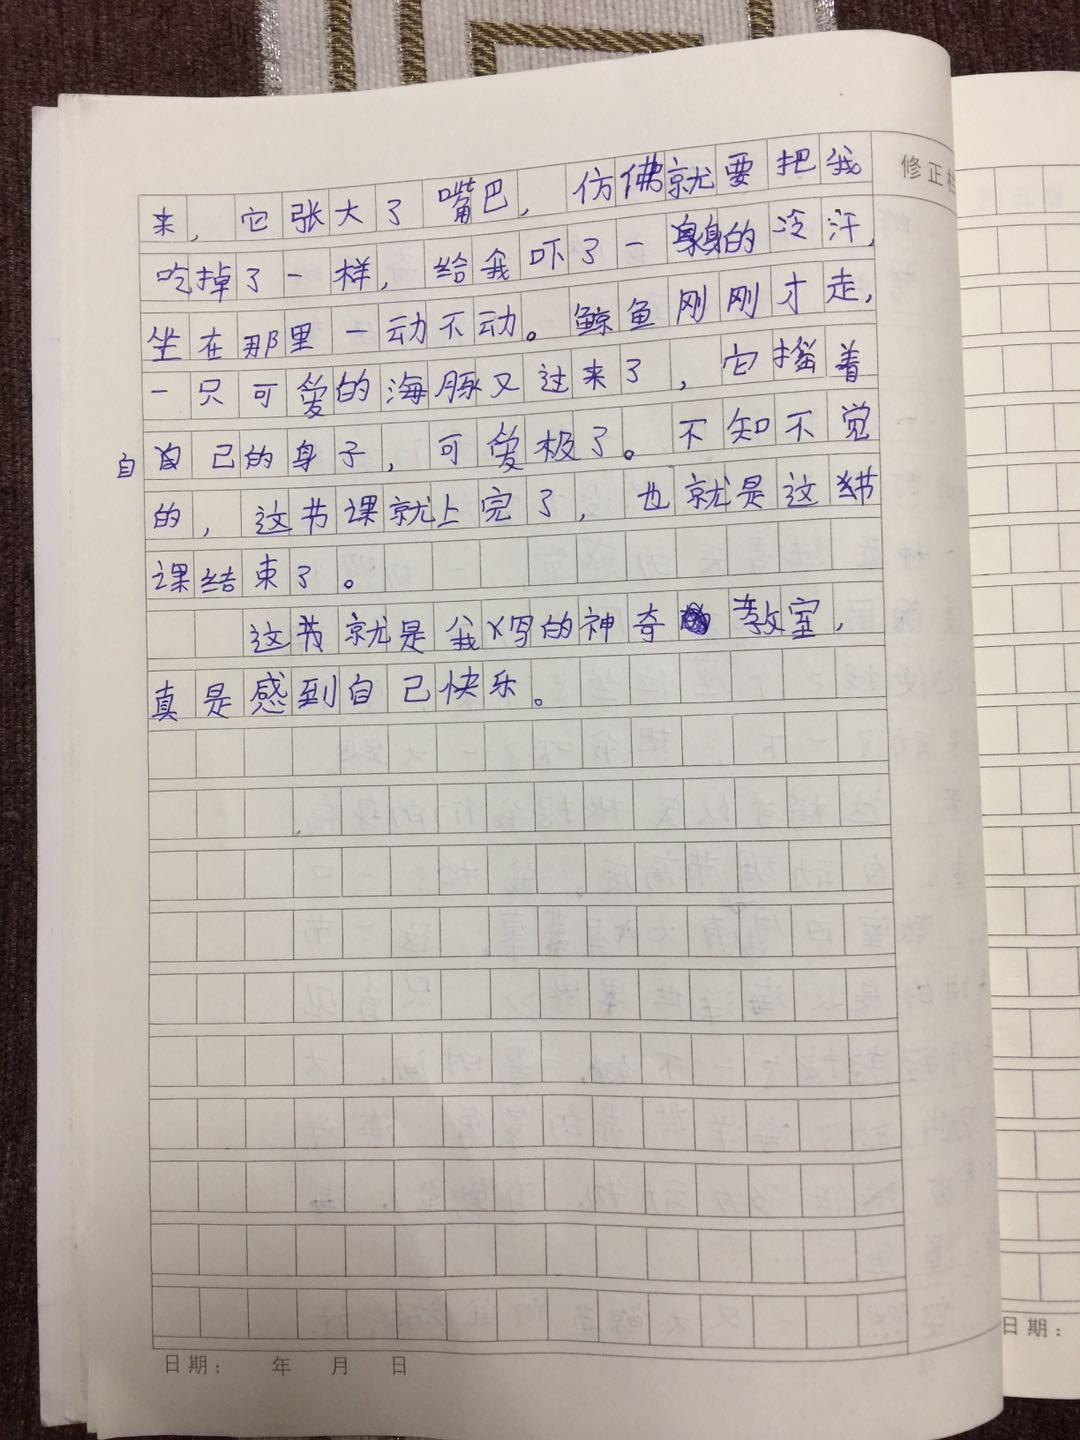 修正栏
来,它张大了嘴巴,仿佛就要把我
吃掉了一样,给我吓了一身的冷汗,
坐在那里一动不动。鲸鱼刚刚才走,
一只可爱的海豚又过来了,它摇着
自己的身子,可爱极了。不知不觉
的,这节课就上完了,也就是这节
课结束了。
这节就是我写的神奇教室,
真是感到自己快乐。
日期: 年 月 日
日期: